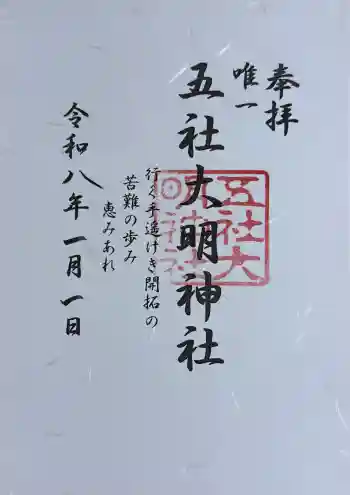 奉拝
唯一
五社大明神社
行く手遥けき開拓の
苦難の歩み
恵みあれ
令和八年一月一日
五社大
明神社